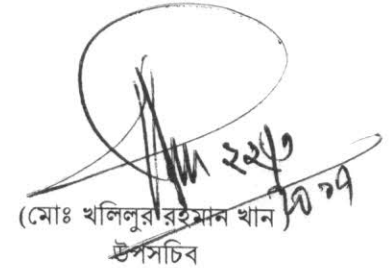 ২২/৩
(মোঃ খলিলুর রহমান খান)
উপসচিব